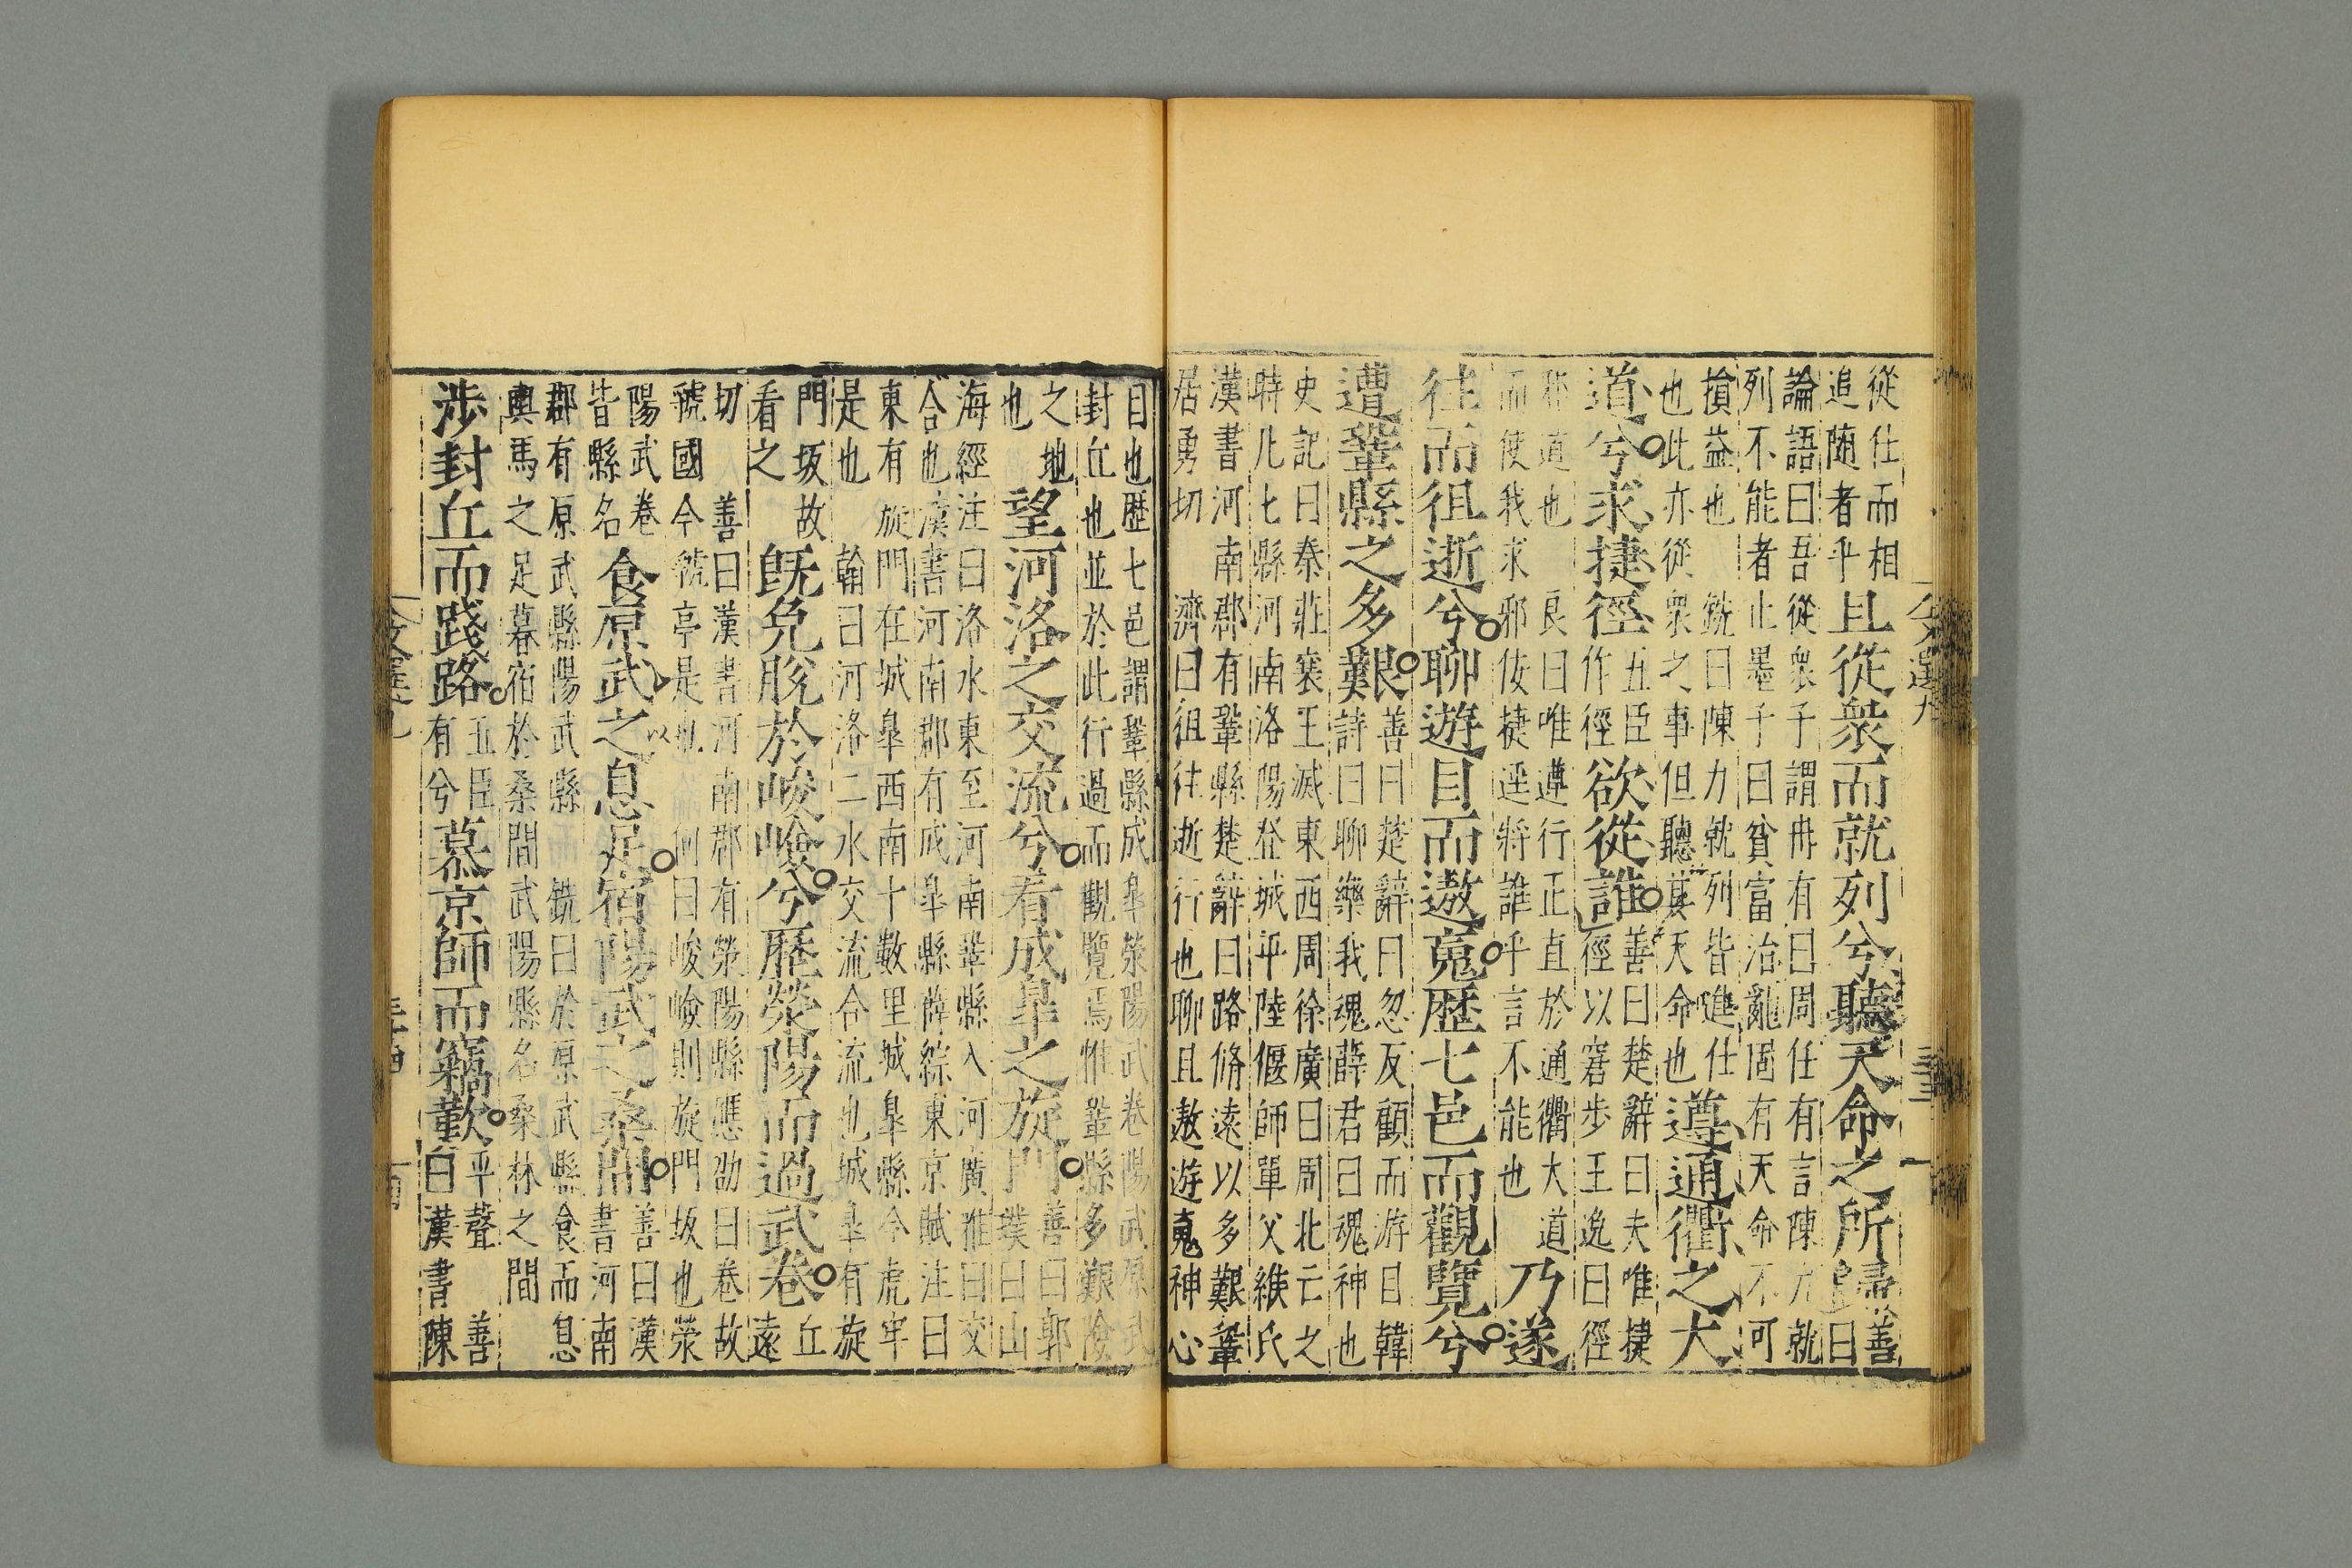 從仕而相
追随者乎
且從衆而就列兮聽天命之所歸
善
曰
論語曰吾從衆子謂冉有曰周任有言陳力就
列不能者止墨子曰貧富治亂固有天命不可
損益也 銑曰陳力就列皆進仕
也此亦從衆之事但聽其天命也
遵通衢之大
道兮求捷徑
五臣
作徑
欲從誰
善曰楚辭曰夫唯捷
徑以窘步王逸曰徑
邪道也 良曰唯遵行正直於通衢大道
而使我求邪佞捷逕將誰乎言不能也
乃遂
往而徂逝兮聊遊目而遨䰟歴七邑而觀覽兮
遭鞏縣之多艱
善曰楚辭曰忽反顧而游目韓
詩曰聊樂我魂薛君曰魂神也
史記曰秦莊襄王滅東西周徐廣曰周北亡之
時凡七縣河南洛陽城平陸偃師單父緱氏
漢書河南郡有鞏縣楚辭曰路脩遠以多艱鞏
居勇切 濟曰徂往逝行也聊且遨遊䰟神心
文選九
目也歴七邑謂鞏縣成皋滎陽武卷陽武原武
封丘也並於此行過而觀覽焉惟鞏縣多艱險
之地
也
望河洛之交流兮看成皋之旋門
善曰郭
璞曰山
海經注曰洛水東至河南鞏縣入河廣雅曰交
合也漢書河南郡有成皋縣薛綜東京賦注曰
東有旋門在城皋西南十數里城皋縣今虎牢
是也 翰曰河洛二水交流合流也城皋有旋
門坂故
看之
旣免脫於峻嶮兮歷滎陽而過武卷
丘
遠
切 善曰漢書河南郡有滎陽縣應劭曰卷故
虢國今虢亭是也 向曰峻嶮則旋門坂也滎
陽武卷
皆縣名
食原武之息足宿陽武之桑間
善曰漢
書河南
郡有原武縣陽武縣 銑曰於原武縣食而息
輿馬之足暮宿於桑間武陽縣名桑林之間
涉封丘而踐路
五臣
有兮
慕京師而竊歎
平聲 善
曰漢書陳